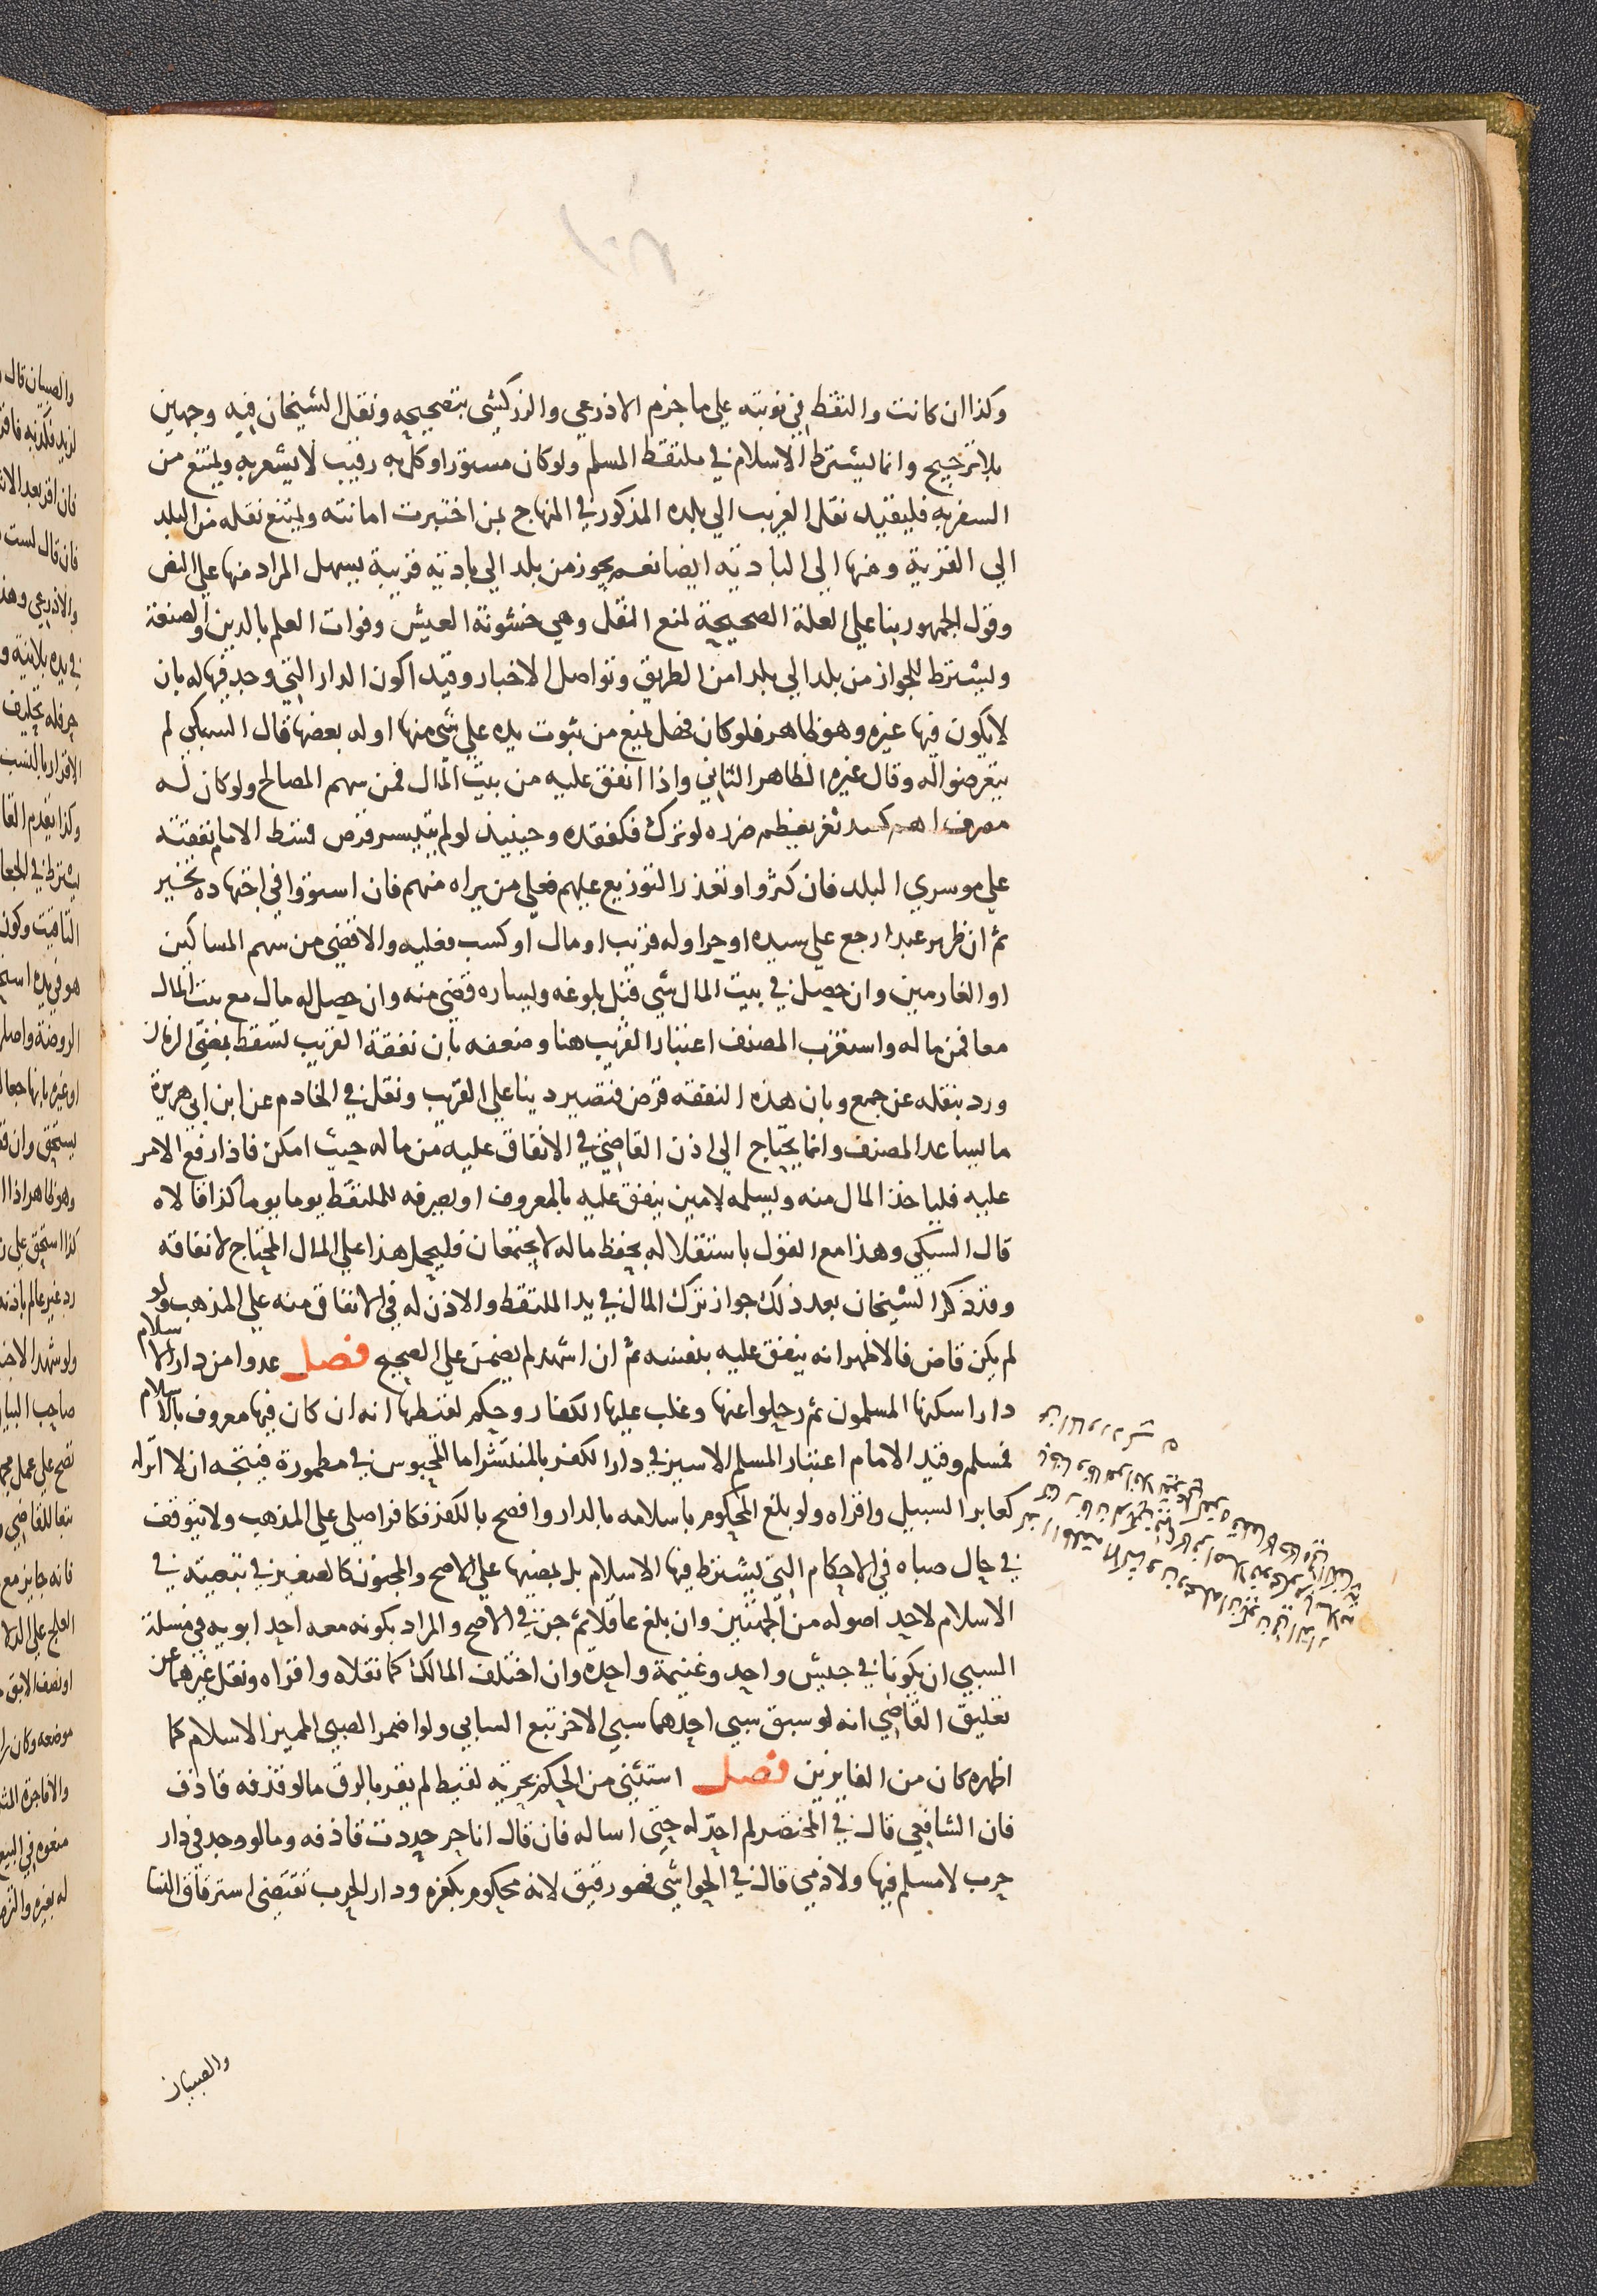 وكذا ان كانت والتقط في نوبته على ما جزم الاذرعي والزركشي بتصحيحه ونقل الشيخان فيه وجهين
بلا ترجيح وانما يشترط الاسلام في ملتقط المسلم ولو كان مستورا وكل به رقيب لا يشعر به ويمتنع من
السفر به فليقيد نقل الغريب الي بلده المذكور في المنهاج بمن اختبرت امانته ويمتنع نقله من البلد
الي القرية ومنها الي البادية ايضا نعم يجوز من بلد الي بادية قريبة يسهل المراد منها علي النص
وقول الجمهور بنا علي العلة الصحيحة لمنع النقل وهي خشونة العيش وفوات العلم بالدين او الصنعة
ويشترط للجواز من بلد الي بلد امن الطريق وتواصل الاخبار وقيدا كون الدار التي وجد فيها له بان
لا يكون فيها غيره وهو ظاهر فلو كان فضل يمنع من ثبوت يده علي شي منها او له بعضها قال السبكي لم
يتعرضوا له وقال غيره الظاهر الثاني واذا انفق عليه من بيت المال فمن سهم المصالح ولو كان له
مصرف اهم كسد ثغر يعظم ضرره لو ترك فكفقده وحينيذ لو لم يتيسر قرض قسط الامام نفقته
علي موسري البلد فان كثروا وتعذر التوزيع عليهم فعلي من يراه منهم فان استووا في اجتهاده تخير
ثم ان ظهر عبدا رجع علي سيده او حرا وله قريب او مال او كسب فعليه والا قضي من سهم المساكين
او الغارمين وان حصل في بيت المال شي قبل بلوغه ويساره قضي منه وان حصل له مال مع بيت المال
معا فمن ماله واستغرب المصنف اعتبار القريب هنا وضعفه بان نفقة القريب تسقط بمضي الزمان
ورد بنقله عن جمع وبان هذه النفقة قرض فتصير دينا علي القريب ونقل في الخادم عن ابن ابي هريرة
ما يساعد المصنف وانما يحتاج الي اذن القاضي في الانفاق عليه من ماله حيث امكن فاذا رفع الامر
عليه فلياخذ المال منه ويسلمه لامين ينفق عليه بالمعروف او يصرفه للملتقط يوما يوما كذا قالاه
قال السبكي وهذا مع القول باستقلاله بحفظ ماله لا يجتمعان فليحمل هذا علي المال المحتاج لانفاقه
وقد ذكر الشيخان بعد ذلك جواز ترك المال في يد الملتقط والاذن له في الانفاق منه علي المذهب ولو
لم يكن قاض فالاظهر انه ينفق عليه بنفسه ثم ان اشهد لم يضمن علي الصحيح فصل عدوا من دار الاسلام
دارا سكنها المسلمون ثم رحلوا عنها وغلب عليها الكفار وحكم لقيطها انه ان كان فيها معروف بالاسلام
فمسلم وقيد الامام اعتبار المسلم الاسير في دار الكفر بالمنتشر اما المحبوس في مطمورة فيتجه ان لا اثر له
كعابر السبيل واقراه ولو بلغ المحكوم باسلامه بالدار وافصح بالكفر فكافر اصلي علي المذهب ولا يتوقف
في حال صباه في الاحكام التي يشترط فيها الاسلام بل يمضيها علي الاصح والمجنون كالصغير في تبعيته في
الاسلام لاحد اصوله من الجهتين وان بلغ عاقلا ثم جن في الاصح والمراد بكونه معه احد ابويه في مسئلة
السبي ان يكونا في جيش واحد وغنيمة واحدة وان اختلف المالك كما نقلاه واقراه ونقل غيرهما عن
تعليق القاضي انه لو سبق سبي احدهما سبي الاخر تبع السابي ولو اضمر الصبي المميز الاسلام كما
اظهره كان من الفايزين فصل استثني من الحكم بحرية لقيط لم يقر بالرق ما لو قذفه قاذف
فان الشافعي قال في المختصر لم احد له حتى اساله فان قال انا حر حددت قاذفه وما لو وجد في دار
حرب لا مسلم فيها ولا ذمي قال في الحواشي فهو رقيق لانه محكوم بكفره ودار الحرب تقتضي استرقاق النسا
والصبيان